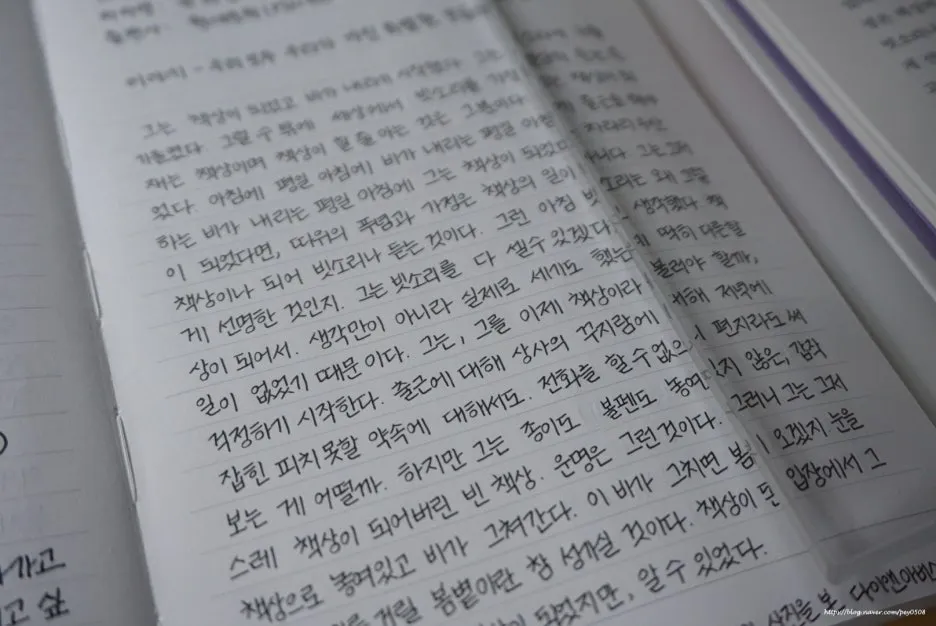 그는 책상이 되었고 비가 내리기 시작했다. 그는
기울였다. 그럴 수 밖에 세상에서 빗소리를 가장
재는 책상이며 책상이 할 줄 아는 것은 그뿐이다
었다. 아침에 평일 아침에 비가 내리는 평일 아침 차라리
하는 비가 내리는 평일 아침에 그는 책상이 되었 그는 그저
이 되었다면, 따위의 푸념과 가정은 책상의 일이 아니다.
책상이나 되어 빗소리나 듣는 것이다. 그런 아침 빗소리는 왜 그렇
게 선명한 것인지. 그는 빗소리를 다 셀수 있겠다고 생각했다. 책
상이 되어서. 생각만이 아니라 실제로 세기도 했는데 딱히 다른할
일이 없었기 때문이다. 그는, 그를 이제 책상이라 불러야 할까,
걱정하기 시작한다. 출근에 대해 상사의 꾸지람에 대해 저녁에
잡힌 피치못할 약속에 대해서도. 전화를 할수없으니 편지라도 써
보는 게 어떨까. 하지만 그는 종이도 볼펜도 놓여있지 않은, 갑작
스레 책상이 되어버린 빈 책상. 운명은 그런것이다. 그러니 그는 그저
책상으로 놓여있고 비가 그쳐간다. 이 비가 그치면 봄이 오겠지 눈을
거릴 봄볕이란 참 성가실 것이다. 책상이 된 입장에서 그
되었지만, 알 수 있었다.
사진을 본 다이앤 아버스
가고
고 싶
http://blog.naver.com/pey0508